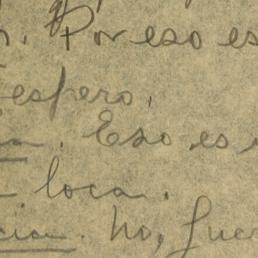 . Por eso es
espero.
. Eso es
loca.
. No, fue